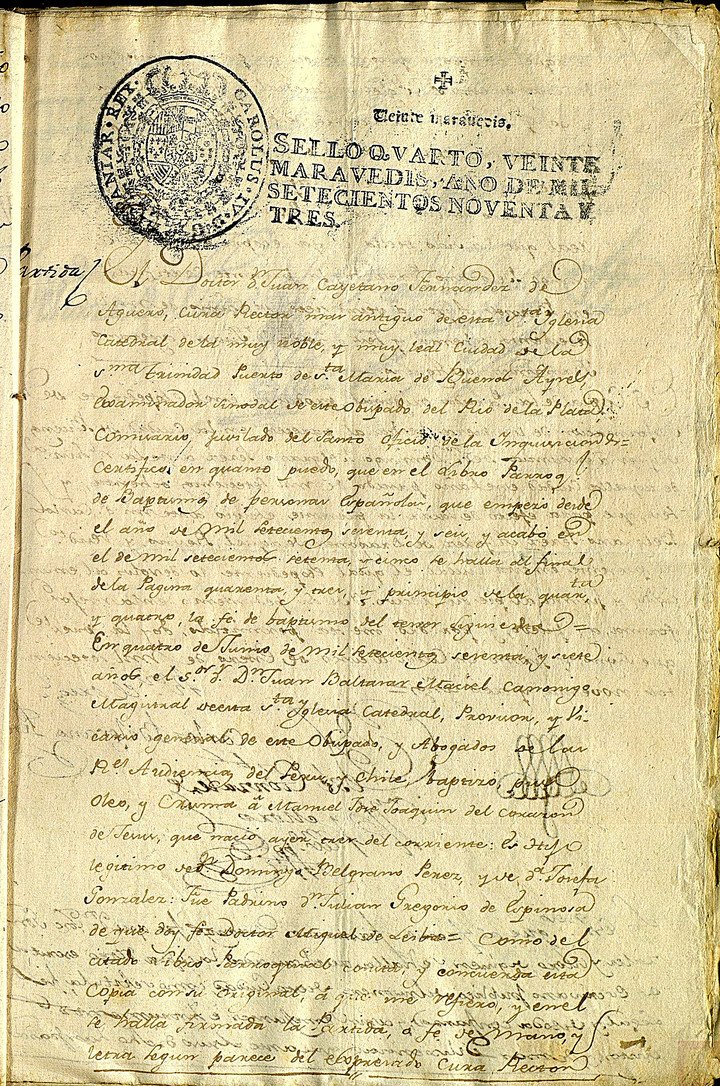 CAROLUS IV D G HISPANIAR REX
Veinte maravedis.
SELLO QVARTO, VEINTE
MARAVEDIS, AÑO DE MIL
SETECIENTOS NOVENTA Y
TRES.
Partida
El Doctor Dn Juan Cayetano Fernandez de
Aguero, Cura Rector mas antiguo de esta Sta Yglesia
Catedral de la muy noble, y muy leal Ciudad de la
sma trinidad Puerto de Sta Maria de Buenos Ayres,
Examinador sinodal de este Obispado del Rio de la Plata
Comisario, juvilado del Santo Oficio de la Inquisicion &=
Certifico en quanto puedo, que en el Libro Parroql
de Baptismos de personas Españolas, que empezó desde
el año de Mil setecientos sesenta, y seis, y acabó en
el de mil setecientos setenta, y cinco se halla al final
de la Pagina quarenta, y tres, y principio de la quarta
y quatro, la fe de baptismo del tenor siguiente =
En quatro de Junio de mil setecientos setenta, y siete
años, el Sor Dr Dn Juan Baltasar Maciel Canonigo
Magistral de esta Sta Yglesia Catedral, Provisor, y Vi-
cario general de este Obispado, y Abogado de las
Rs Audiencias del Peru, y Chile, baptizó, puso
Oleo, y Crisma â Manuel Jose Joaquin del corazon
de Jesus, que nació ayer tres del corriente: Es hijo
legitimo de Dn Domingo Belgrano Perez, y de Da Josefa
Gonzalez: Fue Padrino Dn Julian Gregorio de Espinosa
de que doy fe= Doctor Miguel de Leiba= Como del
citado Libro Parroquial consta, y concuerda esta
Copia con su original, â que me refiero, y en el
se halla firmada la Partida, â fe, de mano, y
letra segun parece del expresado Cura Rector